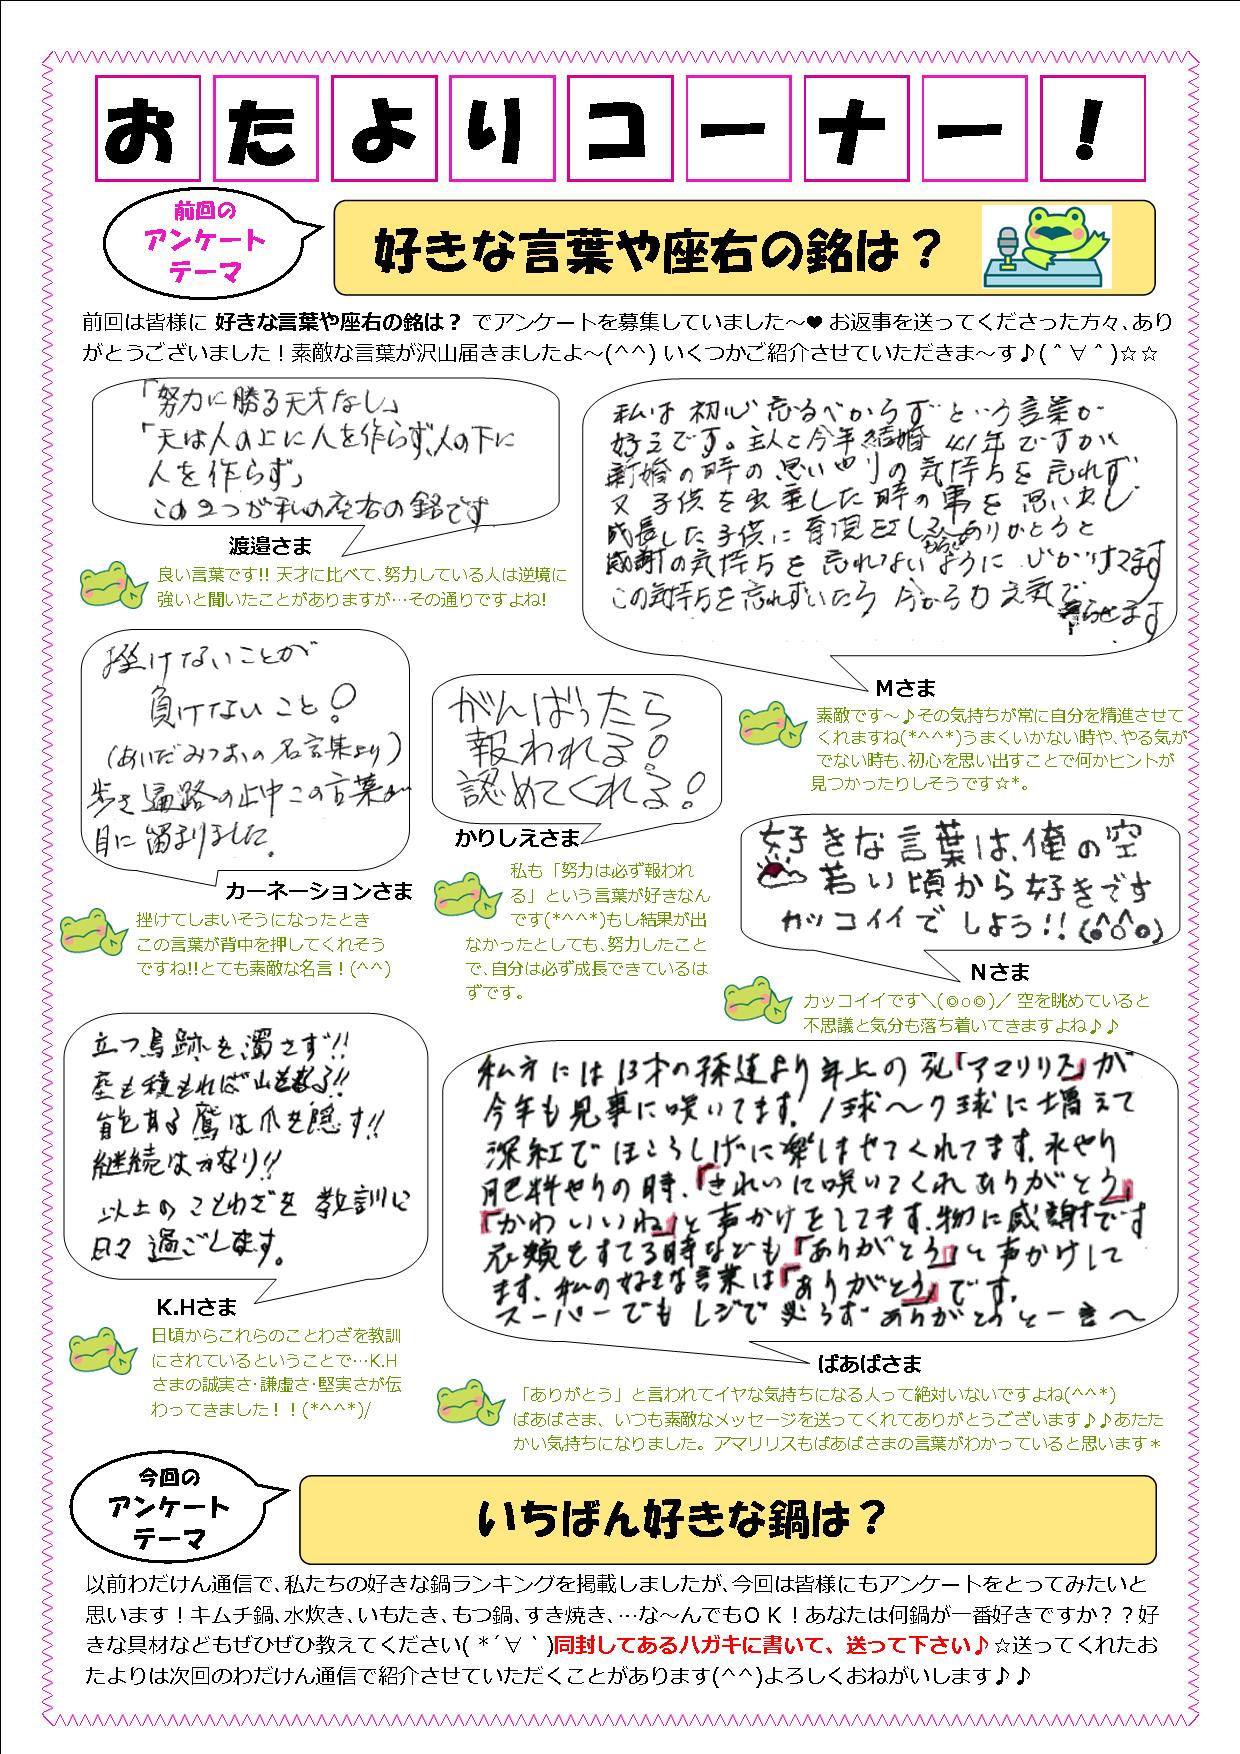 おたよりコーナー！
前回の
アンケート
テーマ
好きな言葉や座右の銘は？
前回は皆様に 好きな言葉や座右の銘は？ でアンケートを募集していました～♥ お返事を送ってくださった方々、あり
がとうございました！素敵な言葉が沢山届きましたよ～(^^) いくつかご紹介させていただきま～す♪( ^ ∀ ^ )☆☆
「努力に勝る天才なし」
「天は人の上に人を作らず、人の下に
人を作らず」
この2つが私の座右の銘です
渡邉さま
良い言葉です!! 天才に比べて、努力している人は逆境に
強いと聞いたことがありますが…その通りですよね!
私は 初心 忘るべからず という言葉が
好きです。主人と今年結婚 41年ですが
新婚の時の思いやりの気持ちを忘れず
又 子供を出産した時の事を思い出し
成長した子供に ありがとうと
感謝の気持ちを忘れないように 心がけてます
この気持ちを忘れずいたら 今からも 元気で
暮らせます
Mさま
素敵です～♪その気持ちが常に自分を精進させて
くれますね(*^^*)うまくいかない時や、やる気が
でない時も、初心を思い出すことで何かヒントが
見つかったりしそうです☆*。
挫けないことが
負けないこと！
(あいだみつおの名言集より)
歩き遍路の途中この言葉が
目に留まりました。
カーネーションさま
挫けてしまいそうになったとき
この言葉が背中を押してくれそう
ですね!!とても素敵な名言！(^^)
がんばったら
報われる！
認めてくれる！
かりしえさま
私も「努力は必ず報われ
る」という言葉が好きなん
です(*^^*)もし結果が出
なかったとしても、努力したこと
で、自分は必ず成長できているは
ずです。
好きな言葉は、俺の空
若い頃から好きです
カッコイイでしょう!!(^o^)
Nさま
カッコイイです＼(◎o◎)／ 空を眺めていると
不思議と気分も落ち着いてきますよね♪♪
立つ鳥跡を濁さず!!
塵も積もれば山となる!!
能ある鷹は爪を隠す!!
継続は力なり!!
以上のことわざを 教訓に
日々 過ごします。
K.Hさま
日頃からこれらのことわざを教訓
にされているということで…K.H
さまの誠実さ・謙虚さ・堅実さが伝
わってきました！！(*^^*)/
私方には13才の孫達より年上の花「アマリリス」が
今年も見事に咲いてます。1球～7球に増えて
深紅でほころしげに楽しませてくれてます。水やり
肥料やりの時、「きれいに咲いてくれありがとう」
「かわいいね」と声かけをしてます。物に感謝です
衣類をすてる時なども「ありがとう」と声かけして
ます。私の好きな言葉は「ありがとう」です。
スーパーでも レジで 必らず ありがとうと一言へ
ばあばさま
「ありがとう」と言われてイヤな気持ちになる人って絶対いないですよね(^^*)
ばあばさま、いつも素敵なメッセージを送ってくれてありがとうございます♪♪あたた
かい気持ちになりました。アマリリスもばあばさまの言葉がわかっていると思います＊
今回の
アンケート
テーマ
いちばん好きな鍋は？
以前わだけん通信で、私たちの好きな鍋ランキングを掲載しましたが、今回は皆様にもアンケートをとってみたいと
思います！キムチ鍋、水炊き、いもたき、もつ鍋、すき焼き、…な～んでもＯＫ！あなたは何鍋が一番好きですか？？好
きな具材などもぜひぜひ教えてください( *´∀｀)同封してあるハガキに書いて、送って下さい♪☆送ってくれたお
たよりは次回のわだけん通信で紹介させていただくことがあります(^^)よろしくおねがいします♪♪